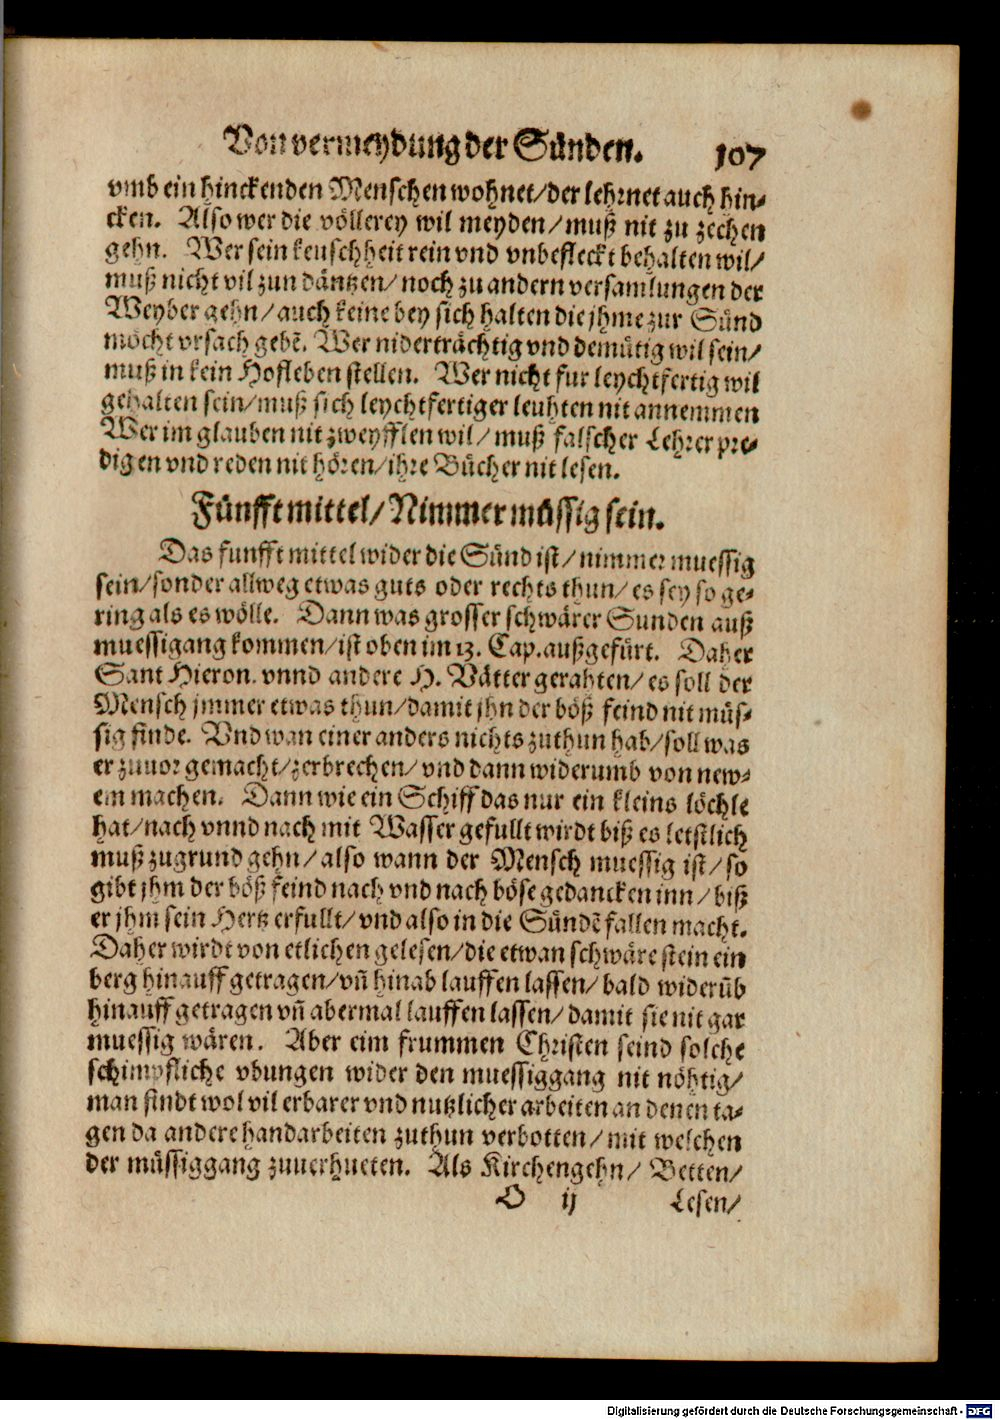 Von vermeydung der Sünden. 107
vmb ein hinckenden Menschen wohnet/ der lehrnet auch hin-
cken. Also wer die völlerey wil meyden/ muß nit zu zechen
gehn. Wer sein keuschheit rein vnd vnbefleckt behalten wil/
muß nicht vil zun däntzen/ noch zu andern versamlungen der
Weyber gehn/ auch keine bey sich halten die jhme zur Sünd
möcht vrsach gebē. Wer niderträchtig vnd demütig wil sein/
muß in kein Hofleben stellen. Wer nicht fur leychtfertig wil
gehalten sein/ muß sich leychtfertiger leuhten nit annemmen
Wer im glauben nit zweyfflen wil/ muß falscher Lehrer pre-
digen vnd reden nit hören/ ihre Bücher nit lesen.
Fünfft mittel/ Nimmer müssig sein.
Das funfft mittel wider die Sünd ist/ nimmer muessig
sein/ sonder allweg etwas guts oder rechts thun/ es sey so ge-
ring als es wölle. Dann was grosser schwärer Sunden auß
muessigang kommen/ ist oben im 13. Cap. außgefürt. Daher
Sant Hieron. vnnd andere H. Vätter gerahten/ es soll der
Mensch jmmer etwas thun/ damit jhn der böß feind nit müs-
sig finde. Vnd wan einer anders nichts zuthun hab/ soll was
er zuuor gemacht/ zerbrechen/ vnd dann widerumb von new-
em machen. Dann wie ein Schiff das nur ein kleins löchle
hat/ nach vnnd nach mit Wasser gefullt wirdt biß es letstlich
muß zugrund gehn/ also wann der Mensch muessig ist/ so
gibt jhm der böß feind nach vnd nach böse gedancken inn/ biß
er jhm sein Hertz erfullt/ vnd also in die Sündē fallen macht.
Daher wirdt von etlichen gelesen/ die etwan schwäre stein ein
berg hinauff getragen/ vñ hinab lauffen lassen/ bald widerūb
hinauff getragen vñ abermal lauffen lassen/ damit sie nit gar
muessig wären. Aber eim frummen Christen seind solche
schimpfliche vbungen wider den muessiggang nit nöhtig/
man findt wol vil erbarer vnd nutzlicher arbeiten an denen ta-
gen da andere handarbeiten zuthun verbotten/ mit welchen
der müssiggang zuuerhueten. Als Kirchengehn/ Betten/
O ij Lesen/
Digitalisierung gefördert durch die Deutsche Forschungsgemeinschaft - DFG